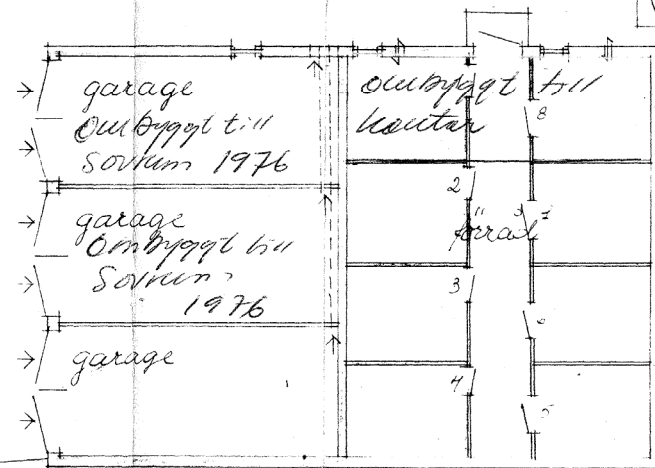 garage
Ombyggt till
Sovrum 1976
garage
Ombyggt till
Sovrum
1976
garage
ombyggt till
kontor
8
2
förråd
7
3
6
4
5